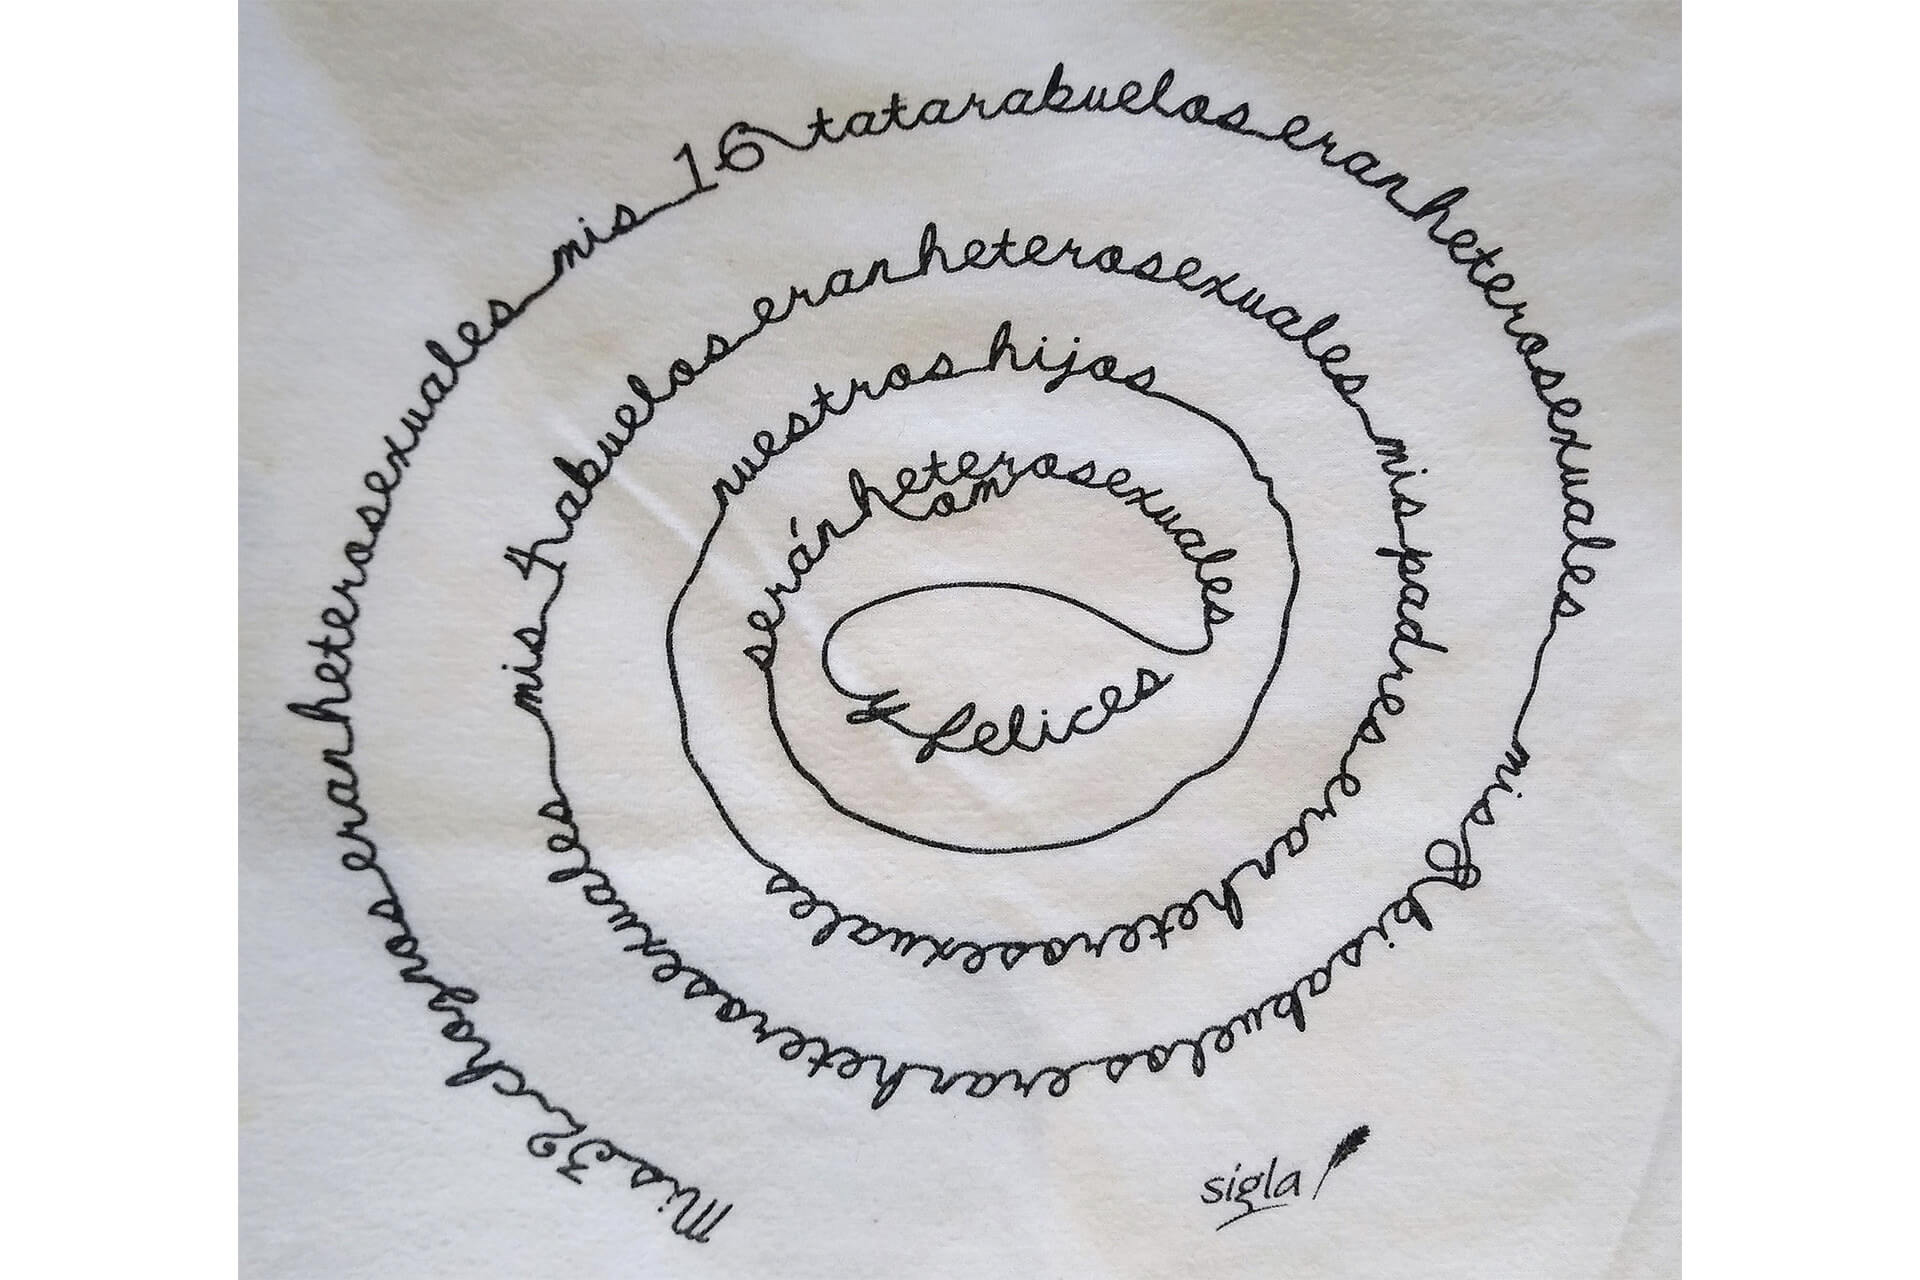 Mis 32 choznos eran heterosexuales
mis 16 tatarabuelos eran heterosexuales
mis 8 bisabuelos eran heterosexuales
mis 4 abuelos eran heterosexuales
mis padres eran heterosexuales
nuestros hijos
serán heterosexuales
om
y felices
sigla